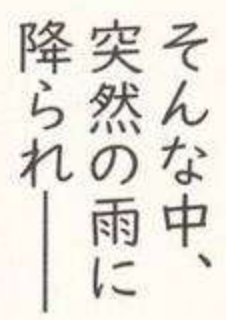 そんな中、
突然の雨に
降られ――